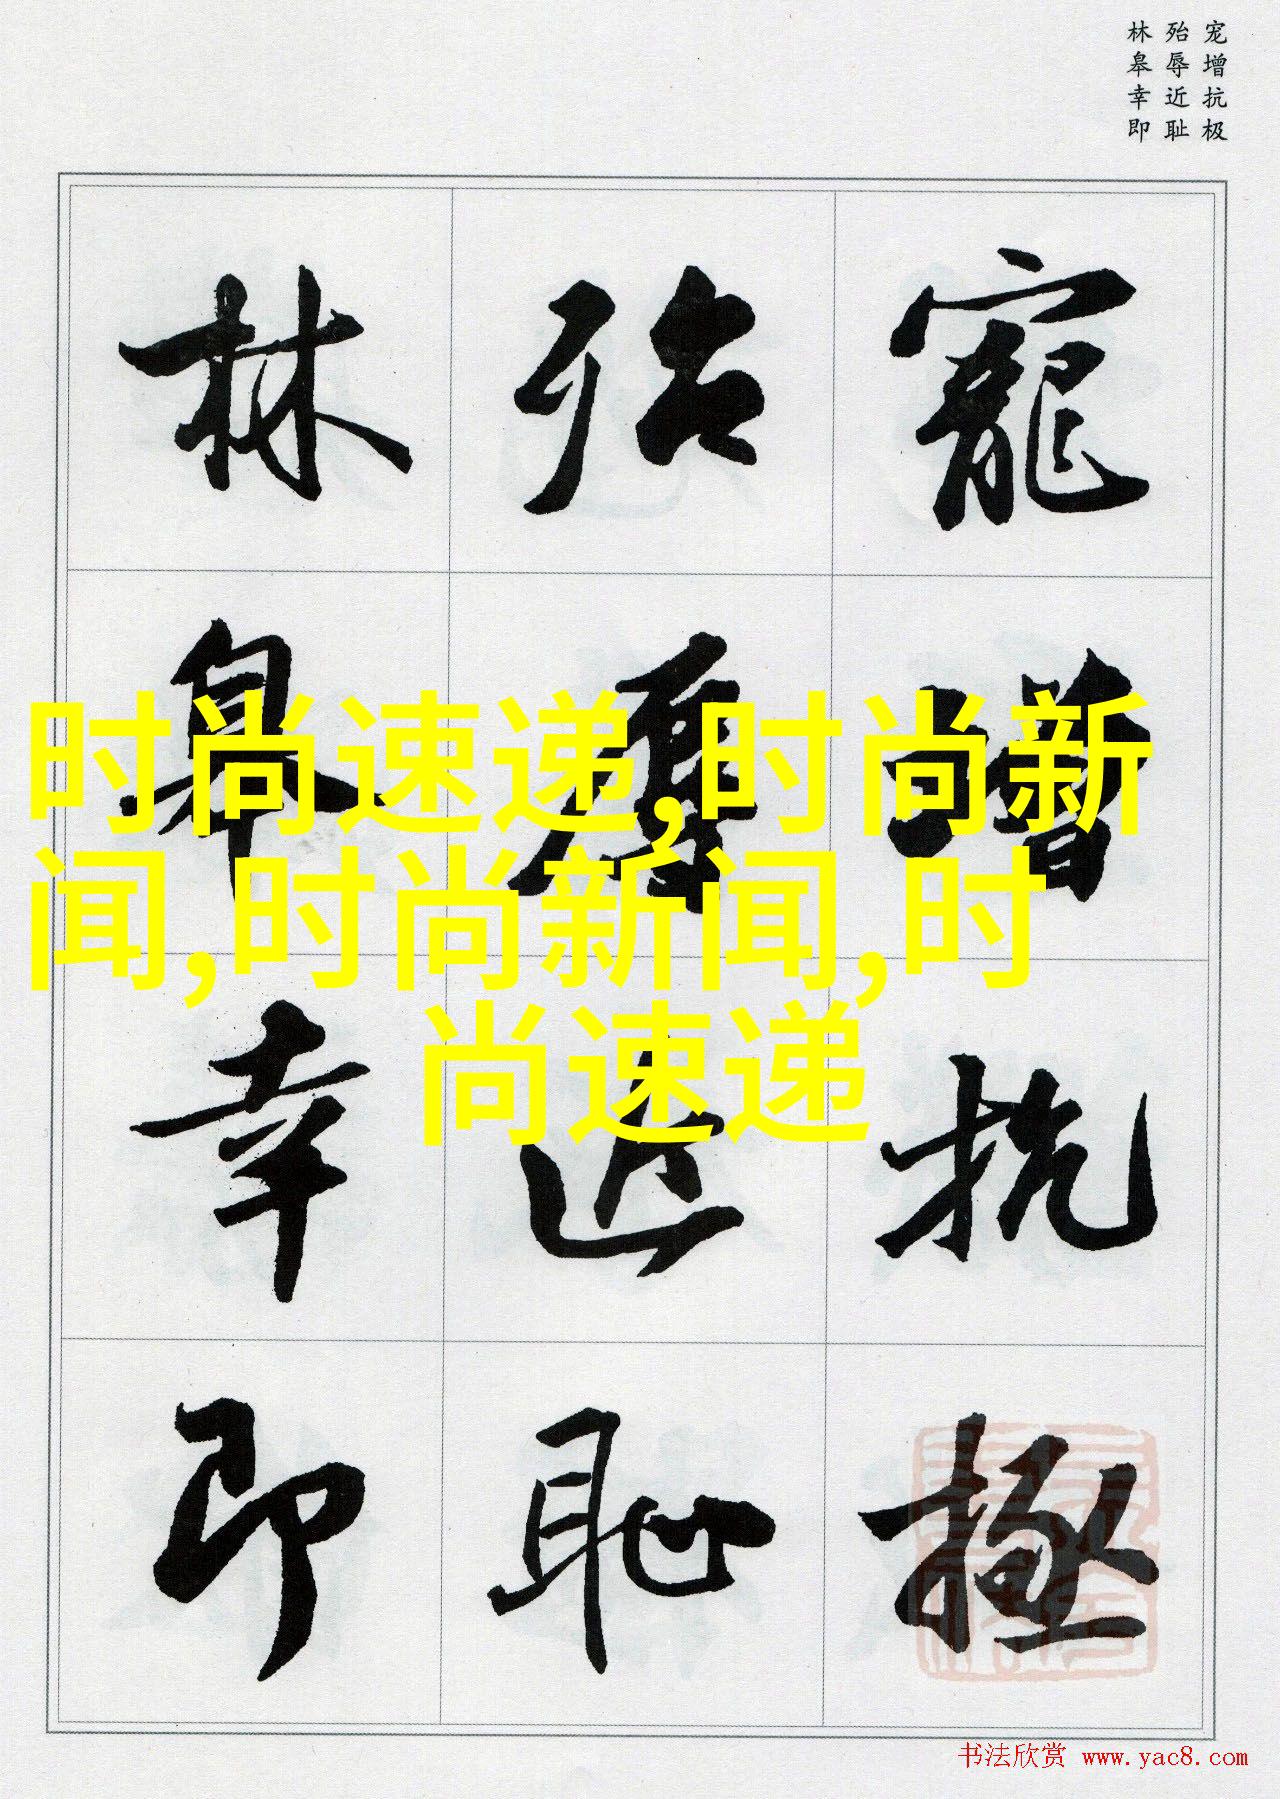 宠增抗极
殆辱近耻
林皋幸即
寵增抗極
殆辱近恥
林皋幸即
时尚速递,时尚新
闻,时尚新闻,时
尚速递
书法欣赏 www.yac8.com